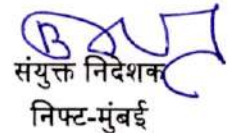 संयुक्त निदेशक
निफ्ट-मुंबई